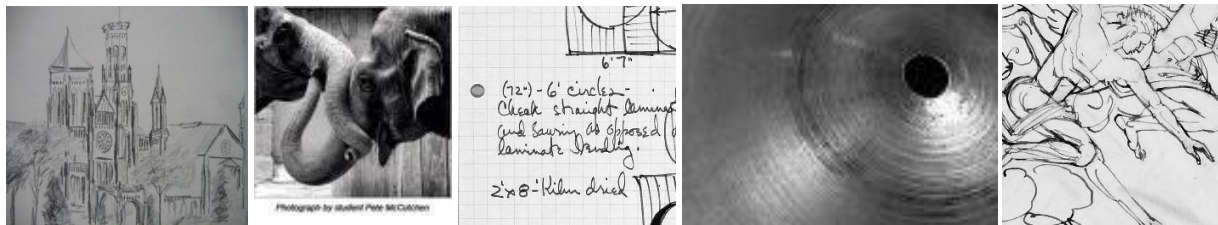 Photograph by student Pete McCutchen
6'7"
(72") - 6' circles -
Check straight
and sawing as opposed
laminate
2'x8'- Kiln dried